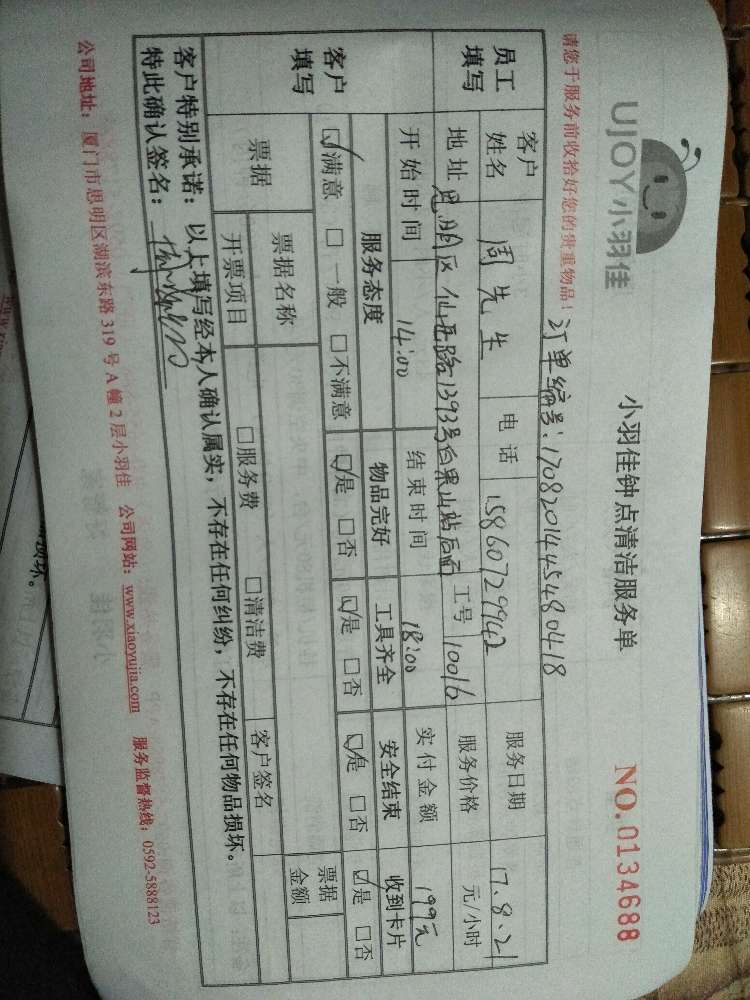 UJOY小羽佳
小羽佳钟点清洁服务单
NO.0134688
请您于服务前收拾好您的贵重物品!
订单编号:1708201445480418
员工填写
客户姓名 周先生 电话 15860729942 服务日期 17.8.21
地址 思明区仙岳路1393号 工号 10016 服务价格 元/小时
开始时间 14:00 结束时间 18:00 实付金额 199元
客户填写
服务态度 物品完好 工具齐全 安全结束 收到卡片
☑满意 □一般 □不满意 ☑是 □否 ☑是 □否 ☑是 □否 ☑是 □否
票据 票据名称 票据金额
开票项目 □服务费 □清洁费 客户签名
客户特别承诺:以上填写经本人确认属实,不存在任何纠纷,不存在任何物品损坏。
特此确认签名:
公司地址:厦门市思明区湖滨东路319号A幢2层小羽佳 公司网站:www.xiaoyujia.com 服务监督热线:0592-5888123